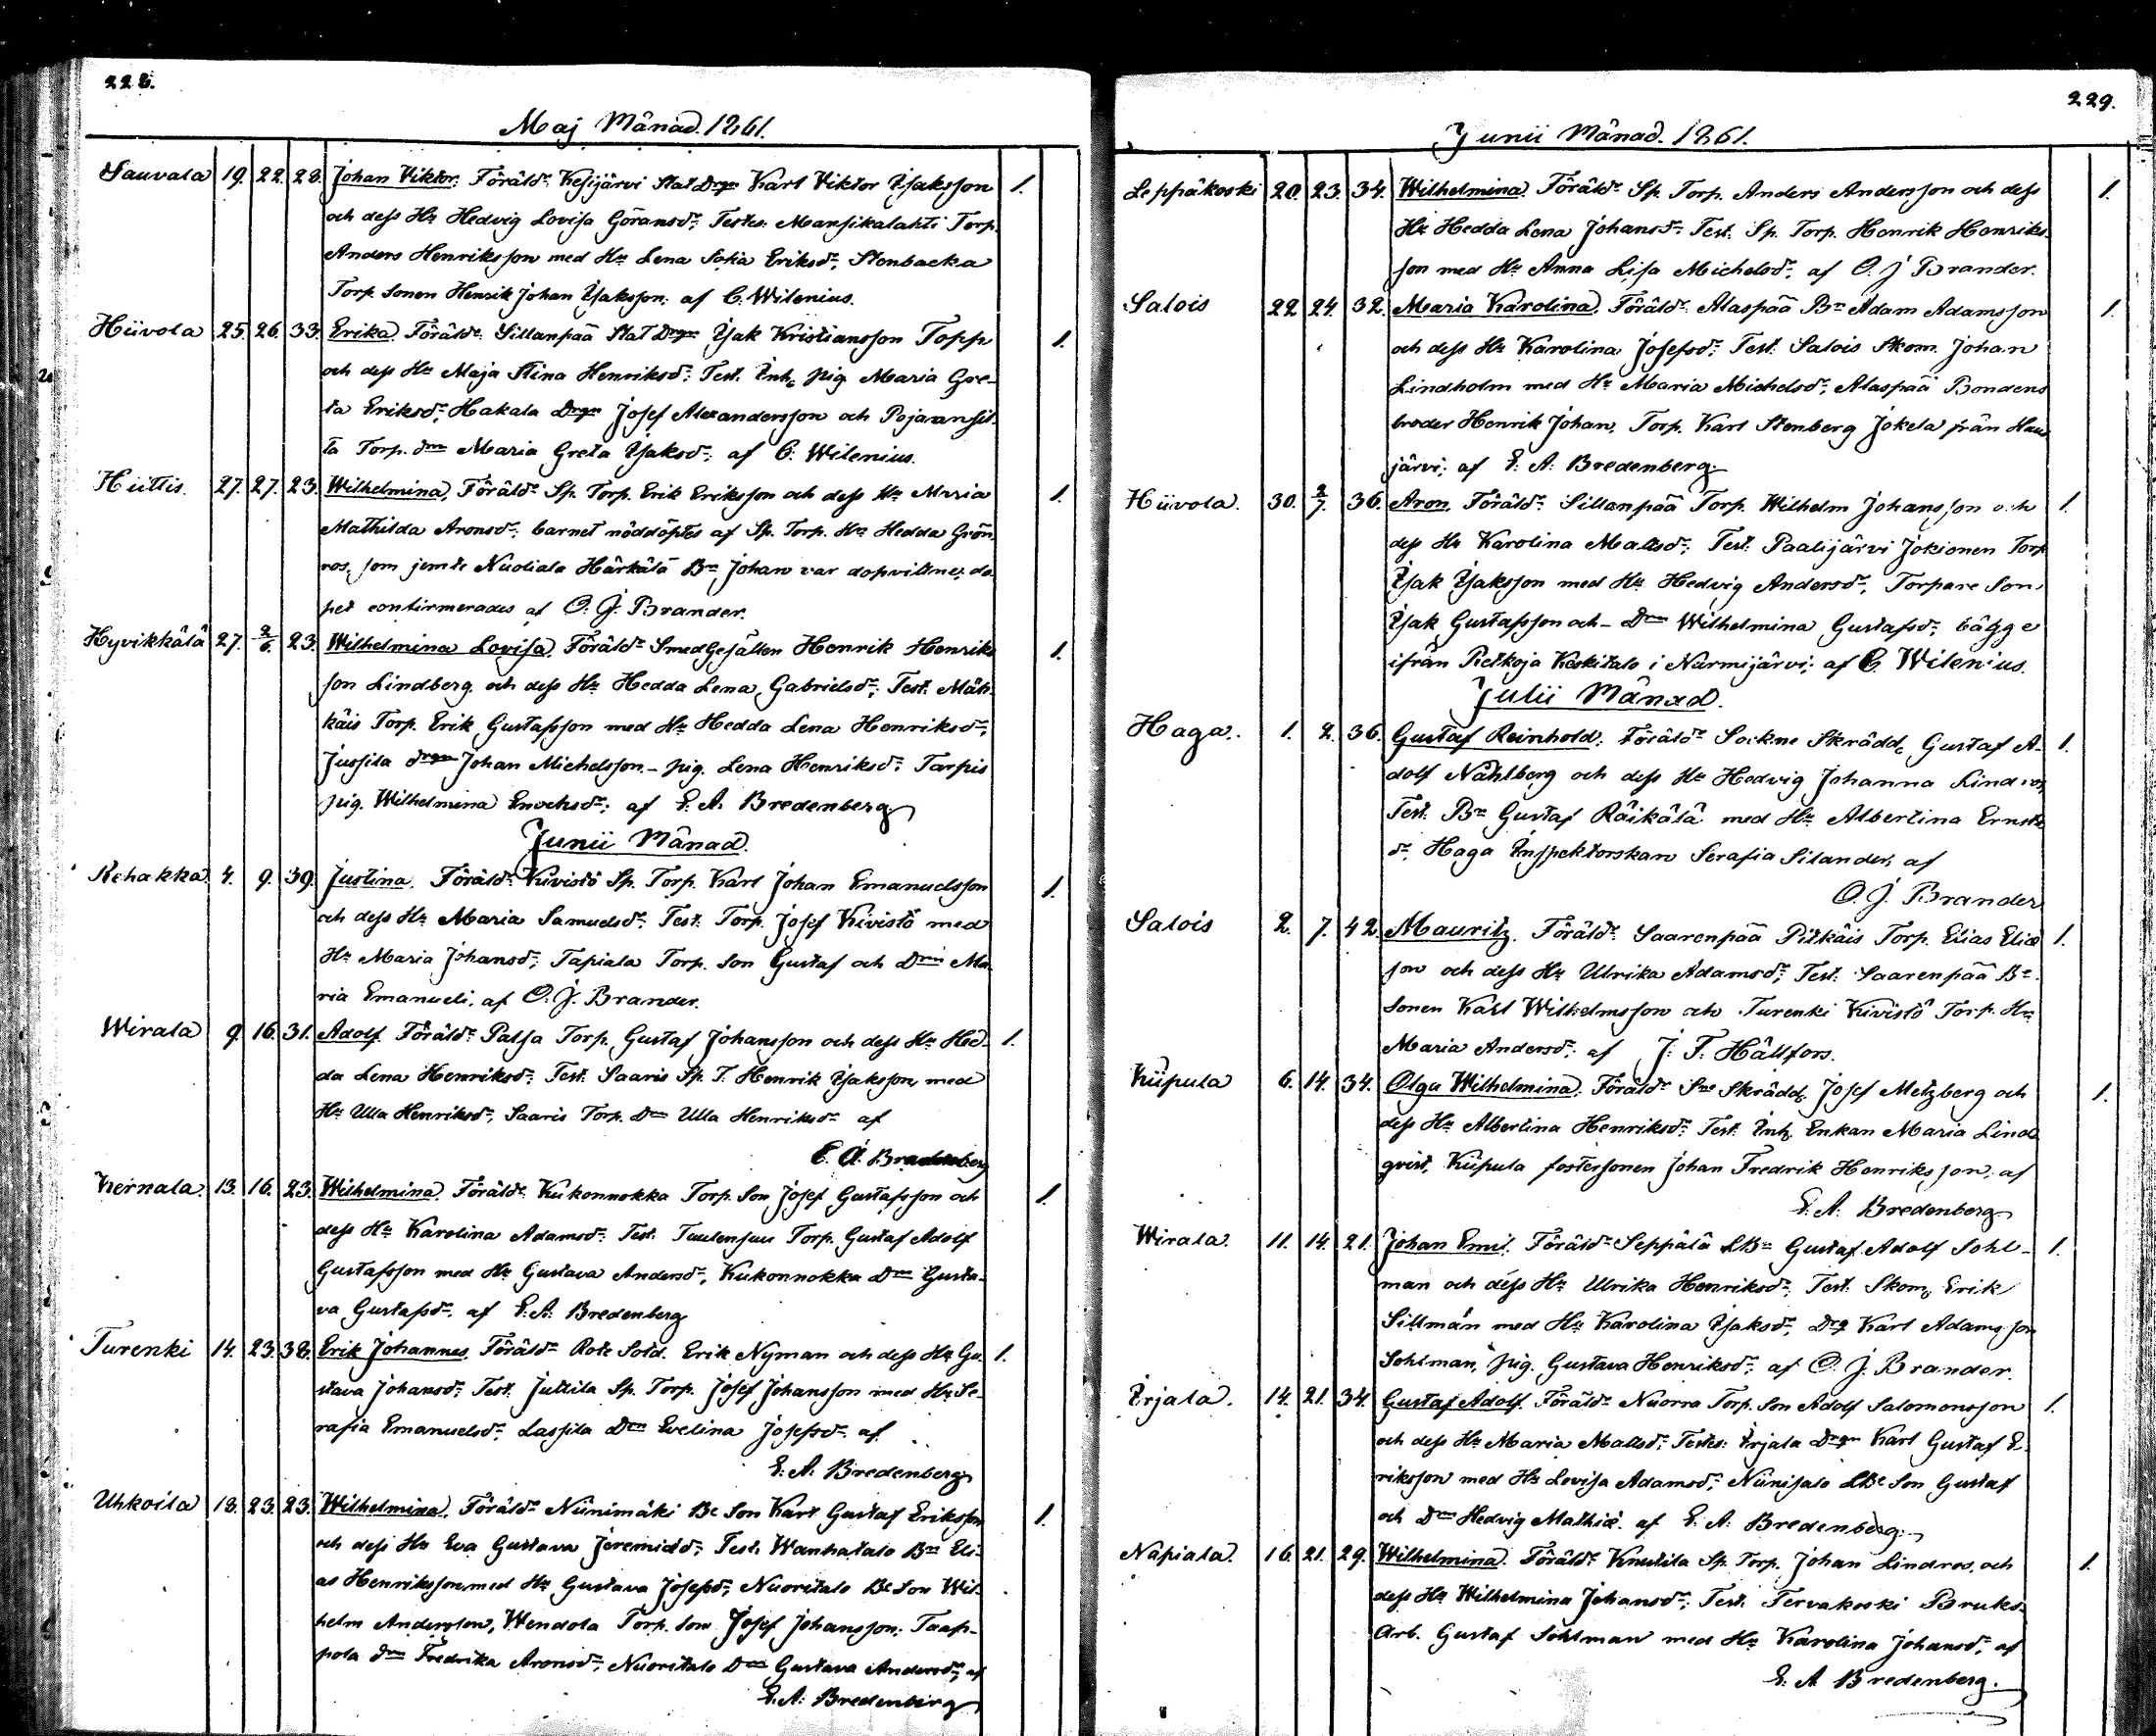 228.
Maj Månad. 1861.
Sauvala 19. 22. 28. Johan Viktor. Föräldr: Kesijärvi Stat Drgn Karl Viktor Isaksson 1.
och dess Hu Hedvig Lovisa Göransdr; Testes: Mansikalahti Torp.
Anders Henriksson med Hu Lena Sofia Eriksdr, Stenbacka
Torp. Sonen Henrik Johan Isaksson; af C. Wilenius.
Hiivola 25. 26. 33. Erika. Föräldr: Sillanpää Stat Drgn Isak Kristiansson Topp 1.
och dess Hu Maja Stina Henriksdr; Test. Inh. pig. Maria Gre-
ta Eriksdr, Hakala Drgn Josef Alexandersson och Pojaransil-
ta Torp. dnn Maria Greta Isaksdr; af C. Wilenius.
Hiittis. 27. 27. 23. Wilhelmina, Föräldr Sp. Torp. Erik Eriksson och dess Hu Maria 1.
Mathilda Aronsdr; barnet nöddöptes af Sp. Torp. Hu Hedda Grön-
ros, som jemte Nuoliala Härkälä Bn Johan var dopvittne; do-
pet confirmerades af O. J. Brander.
Hyvikkälä 27. 2/6. 23. Wilhelmina Lovisa. Föräldr Smedgesällen Henrik Henriks- 1.
son Lindberg och dess Hu Hedda Lena Gabrielsdr; Test. Mäh-
käis Torp. Erik Gustafsson med Hu Hedda Lena Henriksdr;
Jussila drgn Johan Michelsson - pig. Lena Henriksdr; Tarpis
pig. Wilhelmina Enochsdr; af E. A. Bredenberg
Junii Månad.
Rehakka. 4. 9. 39. Justina. Föräldr: Kivistö Sp. Torp. Karl Johan Emanuelsson 1.
och dess Hu Maria Samuelsdr; Test. Torp. Josef Kivistö med
Hu Maria Johansdr; Tapiala Torp. Son Gustaf och Dnn Ma-
ria Emanueli, af O. J. Brander.
Wirala 9. 16. 31. Adolf. Föräldr Palsa Torp. Gustaf Johansson och dess Hu Hed- 1.
da Lena Henriksdr; Test. Saaris Sp. T. Henrik Isaksson med
Hu Ulla Henriksdr, Saaris Torp. Dnn Ulla Henriksdr af
E. A. Bredenberg
Kernala. 13. 16. 23. Wilhelmina. Föräldr Kukonnokka Torp. Son Josef Gustafsson och 1.
dess Hu Karolina Adamsdr. Test. Tuulensuu Torp. Gustaf Adolf
Gustafsson med Hu Gustava Andersdr, Kukonnokka Dnn Gusta-
va Gustafsdr. af E. A. Bredenberg
Turenki 14. 23. 38. Erik Johannes. Föräldr Rote Sold. Erik Nyman och dess Hu Gu- 1.
stava Johansdr; Test. Juttila Sp. Torp. Josef Johansson med Hu Se-
rafia Emanuelsdr, Lassila Dnn Evelina Josefsdr af
E. A. Bredenberg
Uhkoila 18. 23. 23. Wilhelmina. Föräldr Niinimäki Be Son Karl Gustaf Eriksson 1.
och dess Hu Eva Gustava Jeremiædr; Test. Wanhatalo Bn Eli-
as Henriksson med Hu Gustava Josefsdr, Nuoritalo Be Son Wil-
helm Andersson, Wendola Torp. Son Josef Johansson, Taap-
pola dnn Fredrika Aronsdr, Nuoritalo Dnn Gustava Andersdr; af
E. A. Bredenberg
229.
Junii Månad. 1861.
Leppäkoski 20. 23. 34. Wilhelmina. Föräldr Sp. Torp. Anders Andersson och dess 1.
Hu Hedda Lena Johansdr. Test. Sp. Torp. Henrik Henriks-
son med Hu Anna Lisa Michelsdr; af O. J. Brander.
Salois 22 24. 32. Maria Karolina. Föräldr. Alaspää Bn Adam Adamsson 1.
och dess Hu Karolina Josefsdr; Test. Salois Skom. Johan
Lindholm med Hu Maria Michelsdr; Alaspää Bondens
broder Henrik Johan, Torp. Karl Stenberg Jokela från Haus-
järvi; af E. A. Bredenberg.
Hiivola. 30. 2/7. 36. Aron. Föräldr Sillanpää Torp. Wilhelm Johansson och 1.
dess Hu Karolina Mattsdr; Test. Paalijärvi Jokionen Torp.
Isak Isaksson med Hu Hedvig Andersdr, Torpare Son
Isak Gustafsson och Dnn Wilhelmina Gustafsdr; bägge
ifrån Pietkoja Keskitalo i Nurmijärvi; af C. Wilenius.
Julii Månad.
Haga. 1. 2. 36. Gustaf Reinhold. Föräldr Sockne Skrädd. Gustaf A- 1.
dolf Nåhlberg och dess Hu Hedvig Johanna Lindros,
Test. Bn Gustaf Räikälä med Hu Albertina Ernsts-
dr, Haga Inspektorskan Serafia Silander, af
O. J. Brander
Salois 2. 7. 42. Mauritz. Föräldr Saarenpää Pitkäis Torp. Elias Elias- 1.
son och dess Hu Ulrika Adamsdr; Test. Saarenpää Be
Sonen Karl Wilhelmsson och Turenki Kivistö Torp. Hu
Maria Andersdr; af J. F. Hällfors.
Kiipula 6. 14. 34. Olga Wilhelmina. Föräldr Sne Skrädd. Josef Metzberg och 1.
dess Hu Albertina Henriksdr; Test. Inh. Enkan Maria Lind-
qvist, Kiipula fostersonen Johan Fredrik Henriksson; af
E. A. Bredenberg
Wirala. 11. 14. 21. Johan Emil. Föräldr Seppälä LBn Gustaf Adolf Sohl- 1.
man och dess Hu Ulrika Henriksdr; Test. Skom. Erik
Sillman med Hu Karolina Isaksdr, Drg Karl Adamsson
Sohlman, pig. Gustava Henriksdr; af O. J. Brander.
Irjala. 14. 21. 34. Gustaf Adolf. Föräldr Nuorra Torp. Son Adolf Salomonsson 1.
och dess Hu Maria Mattsdr; Testes: Irjala Drgn Karl Gustaf E-
riksson med Hu Lovisa Adamsdr; Niinisalo LBe Son Gustaf
och Dnn Hedvig Mathiæ. af E. A. Bredenberg.
Napiala. 16. 21. 29. Wilhelmina. Föräldr Knutila Sp. Torp. Johan Lindros, och 1.
dess Hu Wilhelmina Johansdr; Test. Tervakoski Bruks-
Arb. Gustaf Sohlman med Hu Karolina Johansdr; af
E. A. Bredenberg.